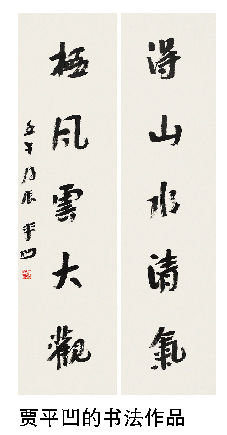 得山水清氣
極風雲大觀
平凹
贾平凹的书法作品